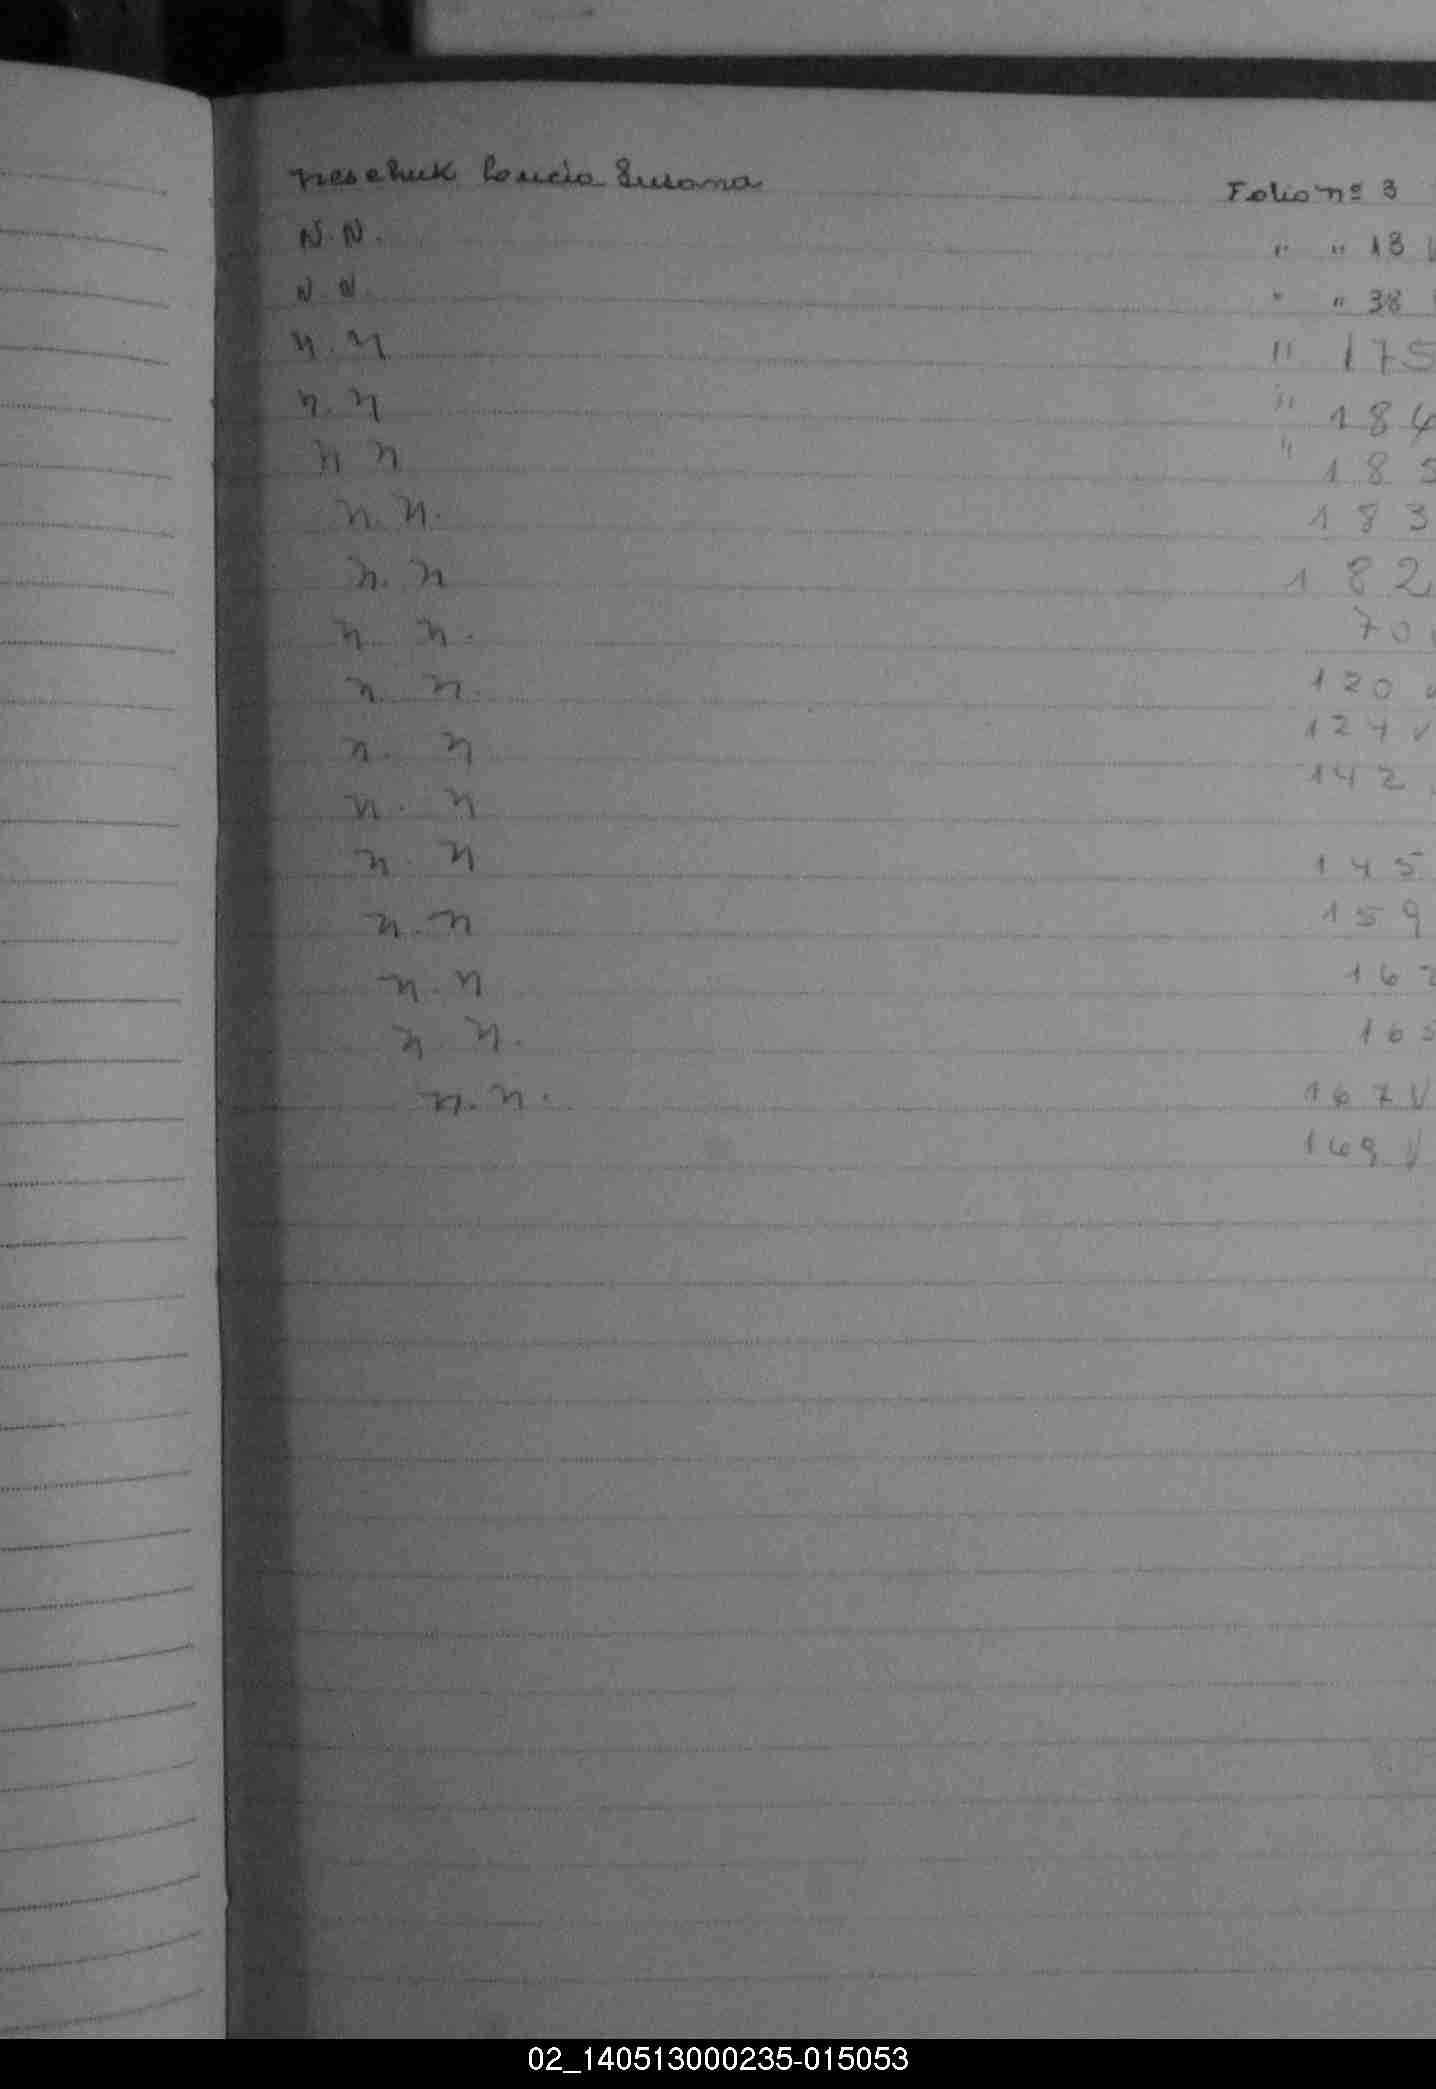 Neschuk Loucia Susana Folio nº 3
N. N. " " 13 V
N. N. " " 38
N. N " 175
N. N " 184
N N " 185
N. N. 183
N. N 182
N N. 70
N N. 120 v
N. N 124 v
N. N 142
N. N 145
N. N 159
N. N 162
N N. 165
N. N. 167 V
169 V
02_140513000235-015053